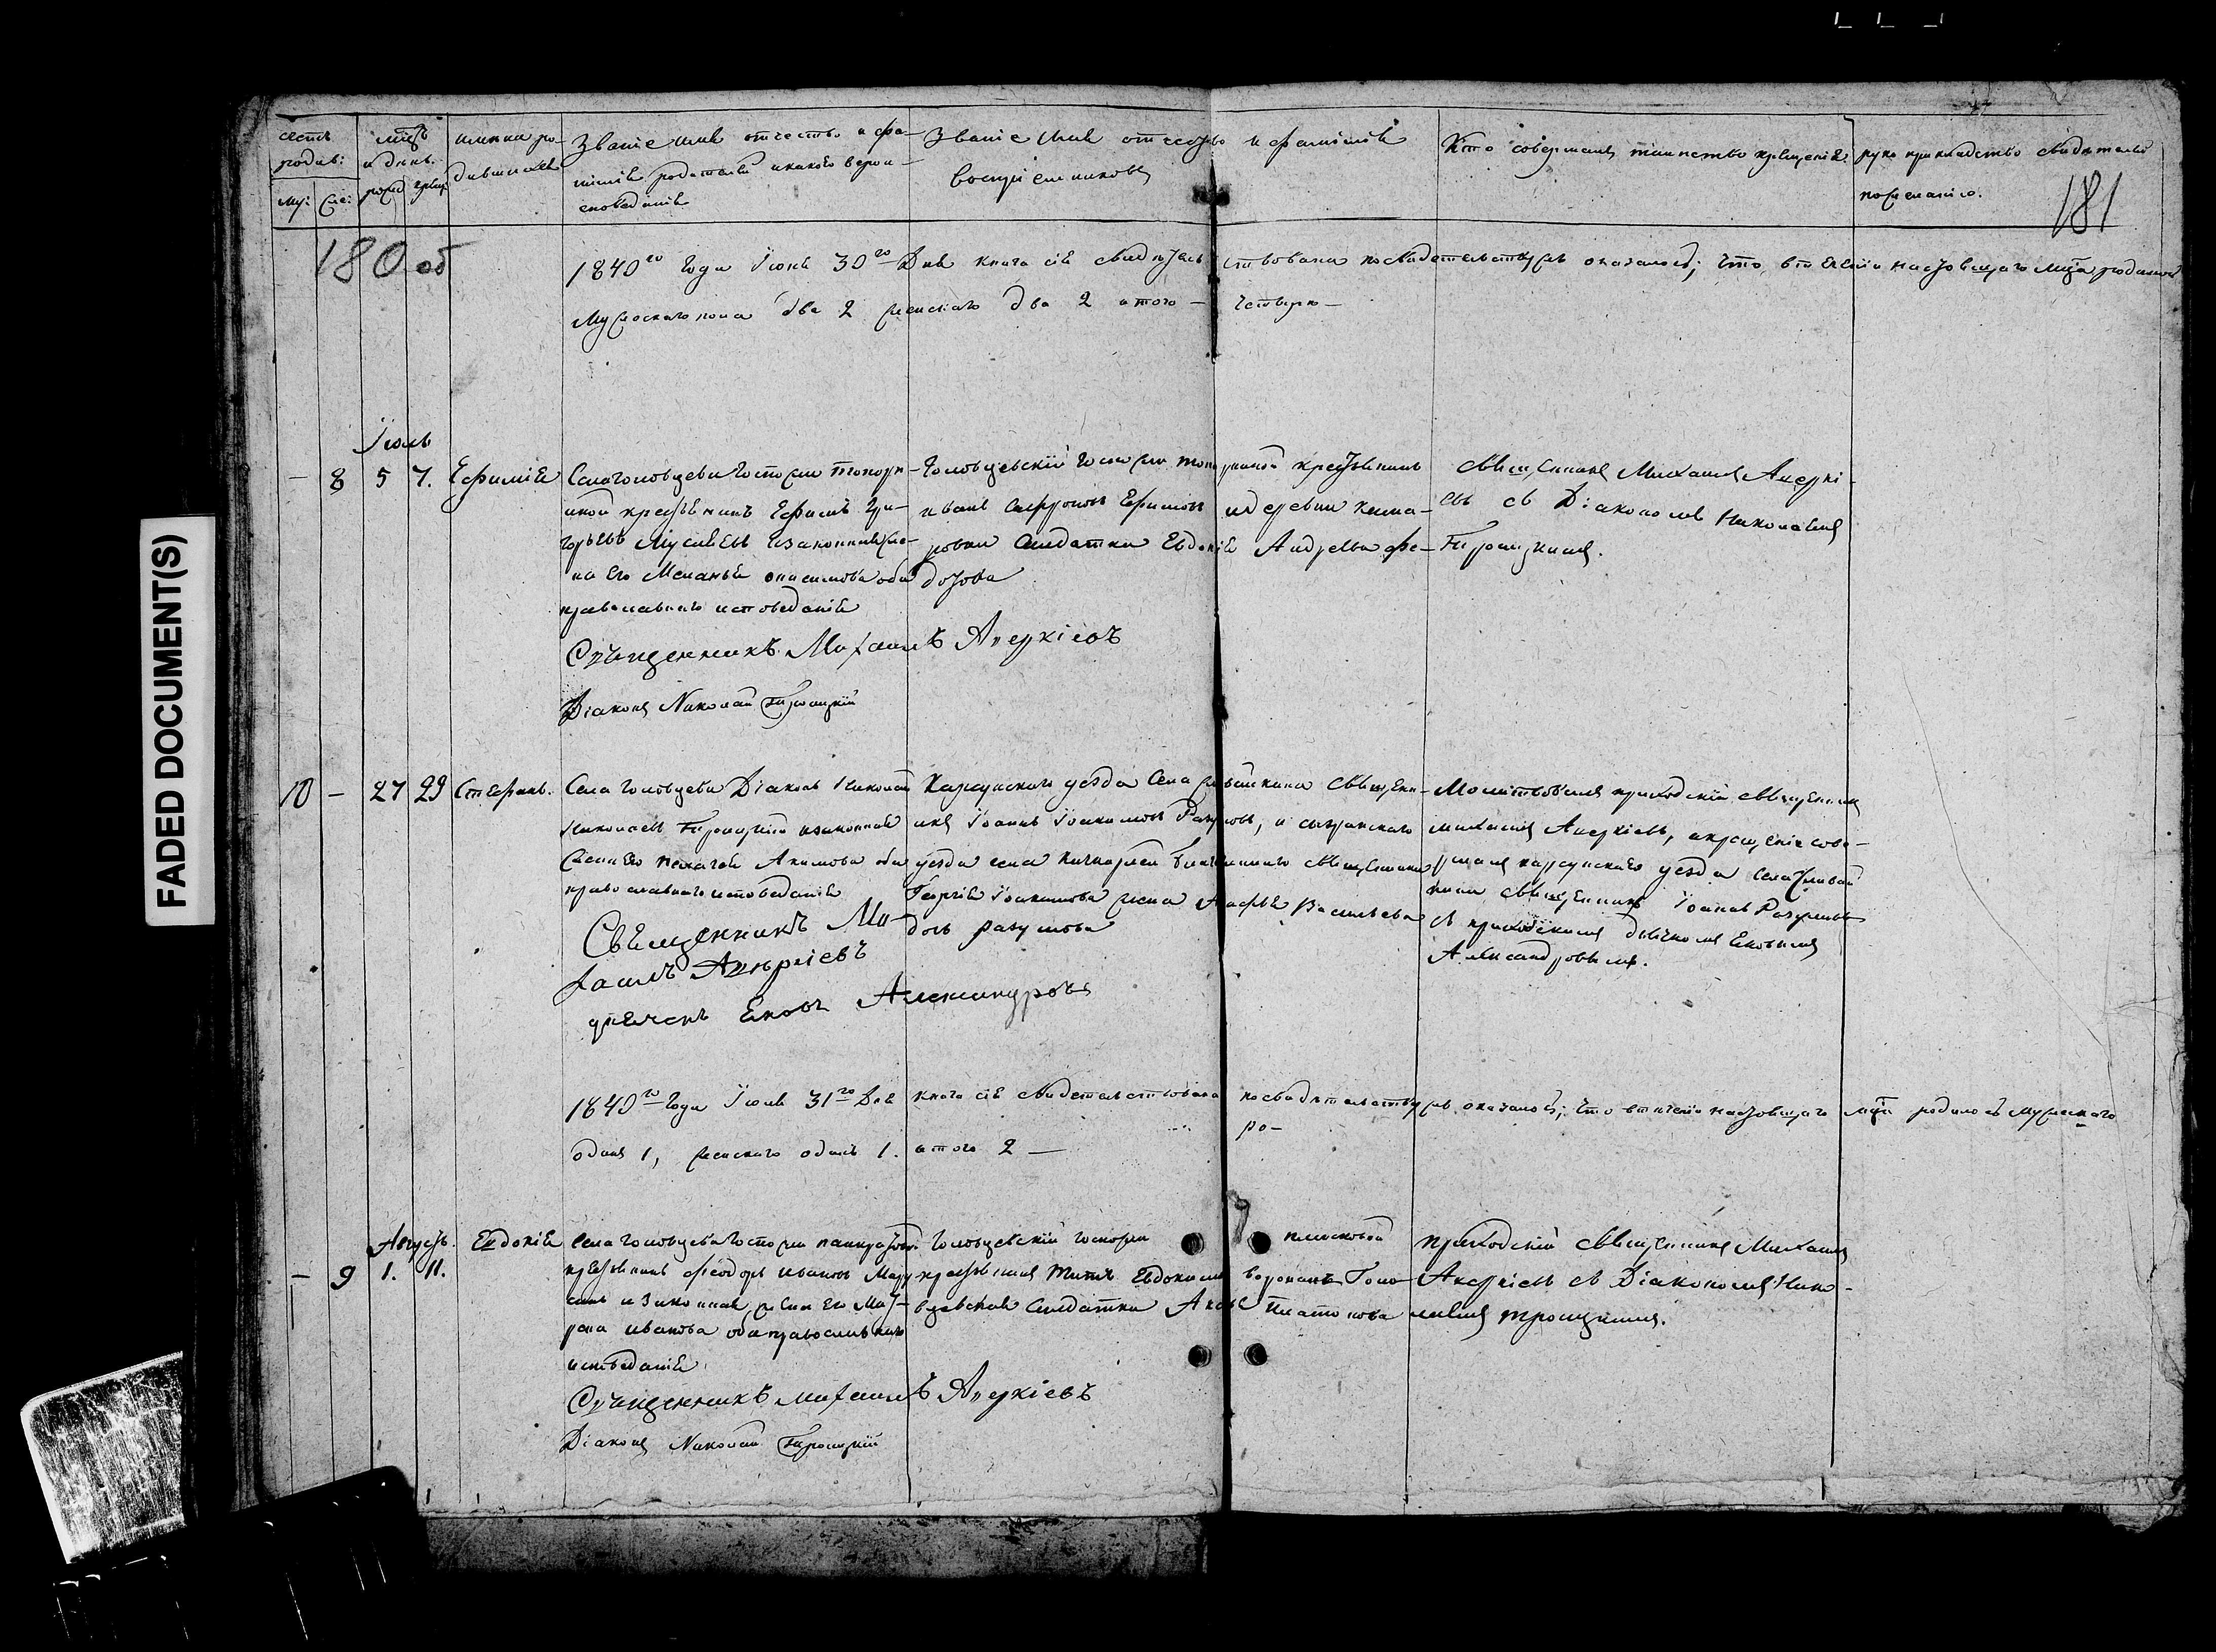 FADED DOCUMENT(S)
счетъ родив: муж: же:
мцъ и день. рожд крещ
имена родившихся
Званіе имя отчество и фамилія родителей и какого вероисповеданія
Званіе имя отчество и фамилія воспріемниковъ
Кто совершалъ таинство крещенія
рукоприкладство свидетелей по желанію.
180 об
181
1840го Года Іюня 30го Дня книга сія свидетельствована по свидетельству оказалось; что, втеченіи настоящаго мца родилось
Мужескаго пола два 2 женскаго два 2 итого — четыре —
Іюль
— 8 5 7. Ефимія
Села Головцева Госпожи
крестьянинъ Ефимъ Гри-
горьевъ и законная же-
на его Меланья Онисимова оба
православнаго исповеданія
Головцевскій Госпожи крестьянинъ
Иванъ Сафроновъ Ефимовъ и деревни
солдатка Евдокія Андреева Фе-
дотова
Священникъ Михаилъ Аверкі-
евъ съ Діакономъ Николаемъ
Троицкимъ.
Священникъ Михаилъ Аверкіевъ
Діаконъ Николай Троицкій
10 — 27 29 Стефанъ.
Села Головцева Діаконъ Николай
Николаевъ Троицкій и законная
жена его Пелагея Акимова оба
православнаго исповеданія
Карсунскаго уезда Села священн-
икъ Іоаннъ Іоакимовъ Разумовъ, и сызранскаго
уезда села священника
Георгія Іоакимова жена Васильева
Разумова
Молитвовалъ приходскій священникъ
Михаилъ Аверкіевъ, а крещеніе сове-
ршалъ карсунскаго уезда села
священникъ Іоаннъ Разумовъ
съ приходскимъ дьячкомъ Яковомъ
Александровымъ.
Священникъ Ми-
хаилъ Аверкіевъ
Яковъ Александровъ
1840го Года Іюля 31го Дня книга сія свидетельствована по свидетельству оказалось; что втеченіи настоящаго мца родилось мужескаго
одинъ 1, женскаго одинъ 1. итого 2 —
Августъ.
— 9 1. 11. Евдокія
Села Головцева Госпожи
крестьянинъ Феодоръ Ивановъ
и законная жена его Мат-
рона Иванова оба православнаго
исповеданія
Головцевскій Госпожи
крестьянинъ Титъ Евдокимовъ Голо-
вцевская солдатка Платонова
Приходскій Священникъ Михаилъ
Аверкіевъ съ Діакономъ Нико-
лаемъ Троицкимъ.
Священникъ Михаилъ Аверкіевъ
Діаконъ Николай Троицкій